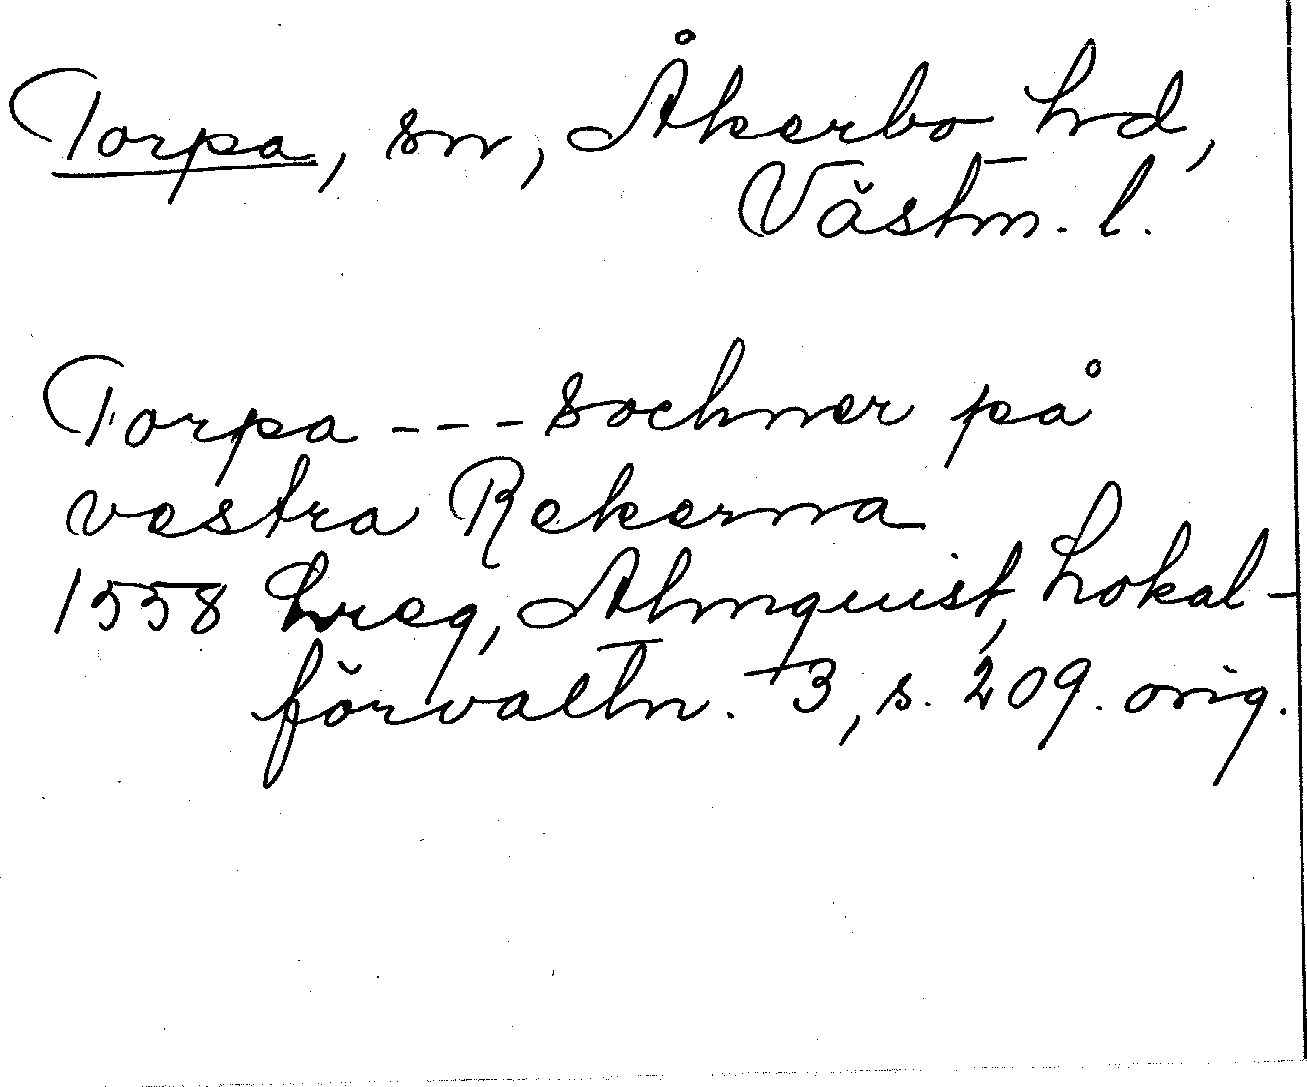 Torpa, sn, Åkerbo hd,
Västm. l.
Torpa --- Sochner på
vestra Rekerna
1558 Lreg, Almquist, Lokal-
förvaltn. 3, s. 209. orig.